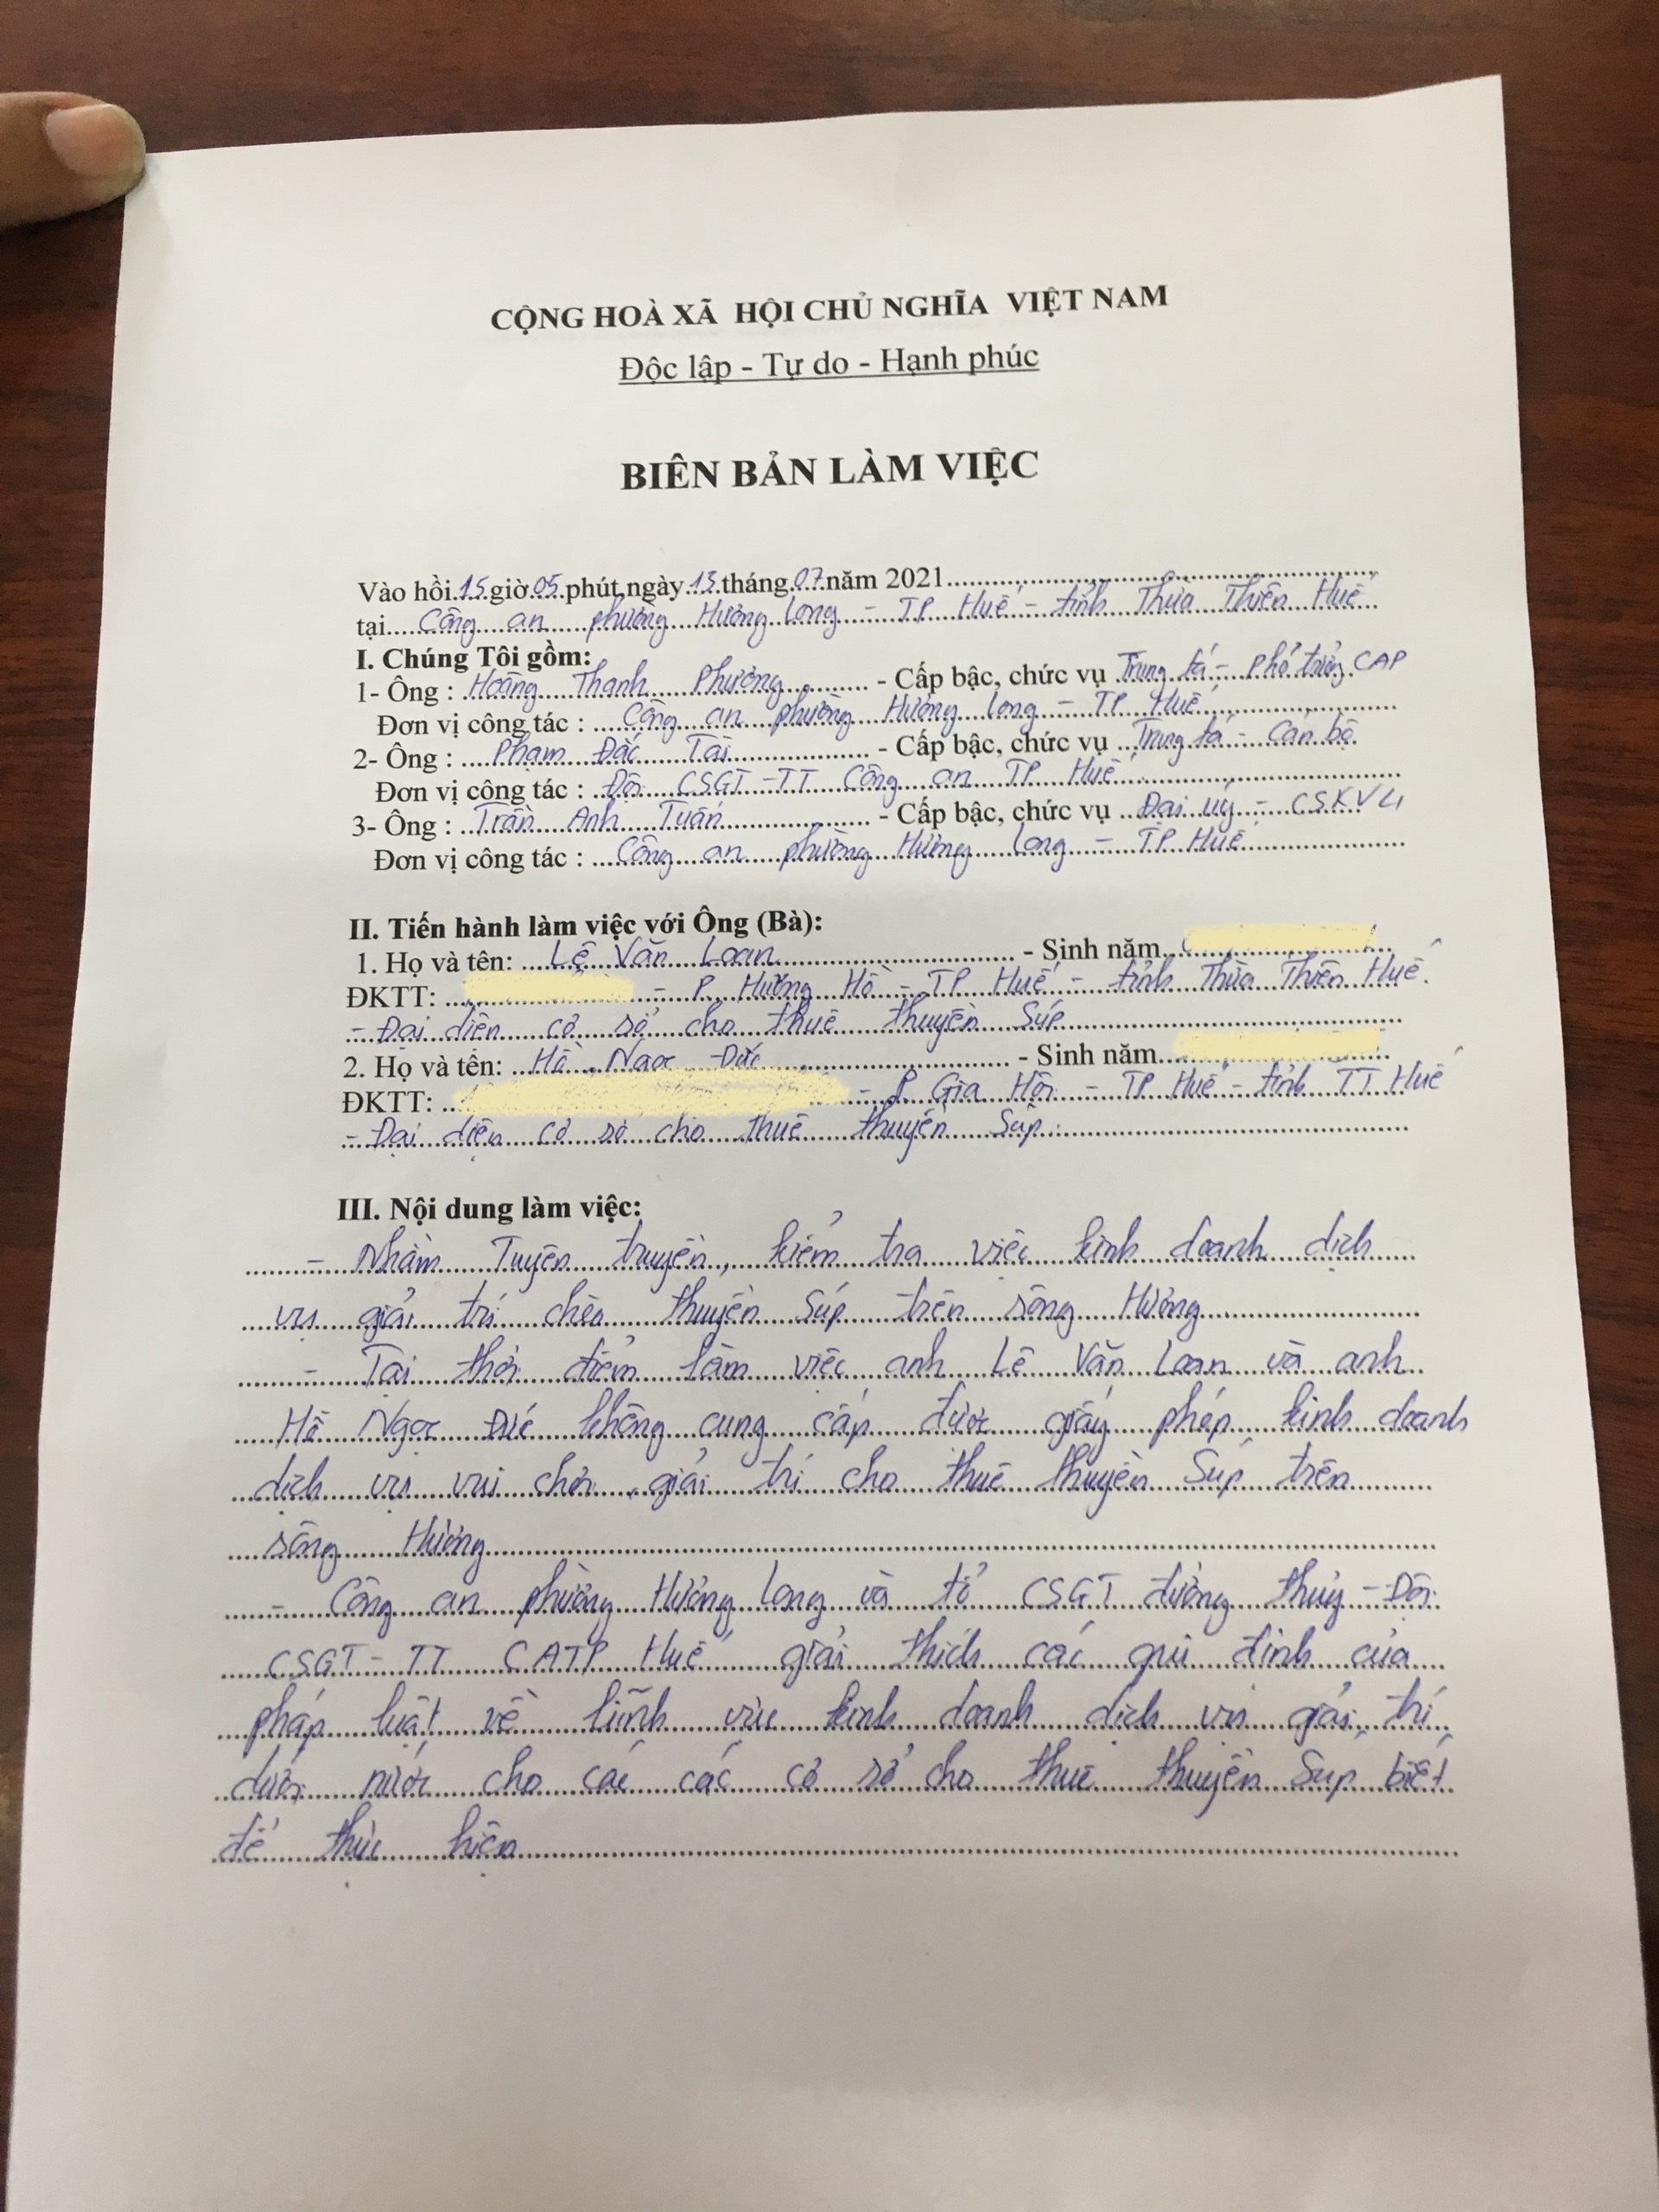 CỘNG HOÀ XÃ HỘI CHỦ NGHĨA VIỆT NAM
Độc lập - Tự do - Hạnh phúc
BIÊN BẢN LÀM VIỆC
Vào hồi 15 giờ 05 phút, ngày 13 tháng 07 năm 2021
tại Công an phường Hương Long - TP Huế - tỉnh Thừa Thiên Huế
I. Chúng Tôi gồm:
1- Ông : Hoàng Thanh Phương - Cấp bậc, chức vụ Trung tá - Phó trưởng CAP
Đơn vị công tác : Công an phường Hương Long - TP Huế
2- Ông : Phạm Đắc Tài - Cấp bậc, chức vụ Trung tá - Cán bộ
Đơn vị công tác : Đội CSGT-TT Công an TP Huế
3- Ông : Trần Anh Tuấn - Cấp bậc, chức vụ Đại uý - CSKV
Đơn vị công tác : Công an phường Hương Long - TP Huế
II. Tiến hành làm việc với Ông (Bà):
1. Họ và tên: Lê Văn Loan - Sinh năm
ĐKTT: - P. Hương Hồ - TP Huế - tỉnh Thừa Thiên Huế.
- Đại diện cơ sở cho thuê thuyền Súp
2. Họ và tên: Hồ Ngọc Đức - Sinh năm
ĐKTT: - P Gia Hội - TP Huế - tỉnh TT Huế
- Đại diện cơ sở cho thuê thuyền Súp.
III. Nội dung làm việc:
- Nhằm Tuyên truyền, kiểm tra việc kinh doanh dịch
vụ giải trí chèo thuyền Súp trên sông Hương
- Tại thời điểm làm việc anh Lê Văn Loan và anh
Hồ Ngọc Đức không cung cấp được giấy phép kinh doanh
dịch vụ vui chơi, giải trí cho thuê thuyền Súp trên
sông Hương
- Công an phường Hương Long và tổ CSGT đường thuỷ - Đội
CSGT-TT CATP Huế giải thích các qui định của
pháp luật về lĩnh vực kinh doanh dịch vụ giải trí
dưới nước cho các các cơ sở cho thuê thuyền Súp biết
để thực hiện